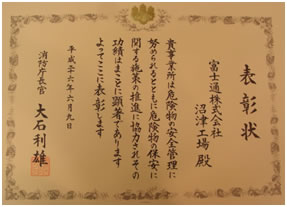 表彰状
富士通株式会社
沼津工場 殿
貴事業所は危険物の安全管理に
努められるとともに危険物の保安に
関する施策の推進に協力されその
功績はまことに顕著であります
よってここに表彰します
平成二十六年六月九日
消防庁長官 大石利雄